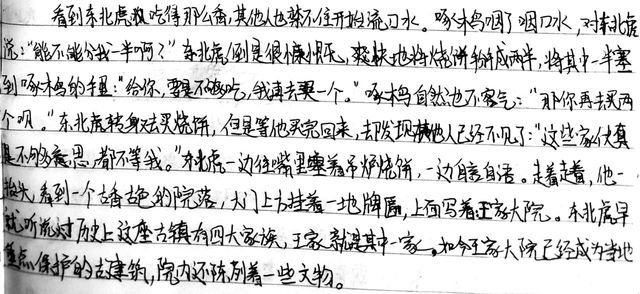 看到东北虎吃得那么香,其他人也禁不住开始流口水。啄木鸟咽了咽口水,对东北虎
说:"能不能分我一半啊?"东北虎倒是很慷慨,爽快地将烧饼掰成两半,将其中一半塞
到啄木鸟的手里:"给你,要是不够吃,我再去买一个。"啄木鸟自然也不客气:"那你再去买两
个呗。"东北虎转身去买烧饼,但是等他买完回来,却发现其他人已经不见了:"这些家伙真
是不够意思,都不等我。"东北虎一边往嘴里塞着吊炉烧饼,一边自言自语。走着走着,他一
抬头,看到一个古香古色的院落,大门上方挂着一块牌匾,上面写着王家大院。东北虎早
就听说过历史上这座古镇有四大家族,王家就是其中一家。如今王家大院已经成为当地
重点保护的古建筑,院内还陈列着一些文物。